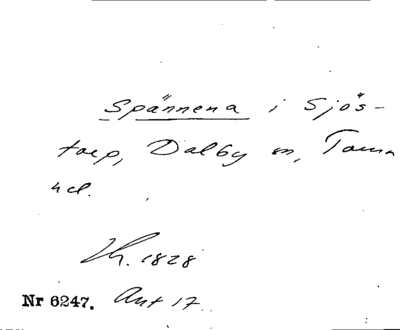 Spännena i Sjös-
torp, Dalby sn, Torna
hd.
Lh. 1828
Nr 6247. Ant 17